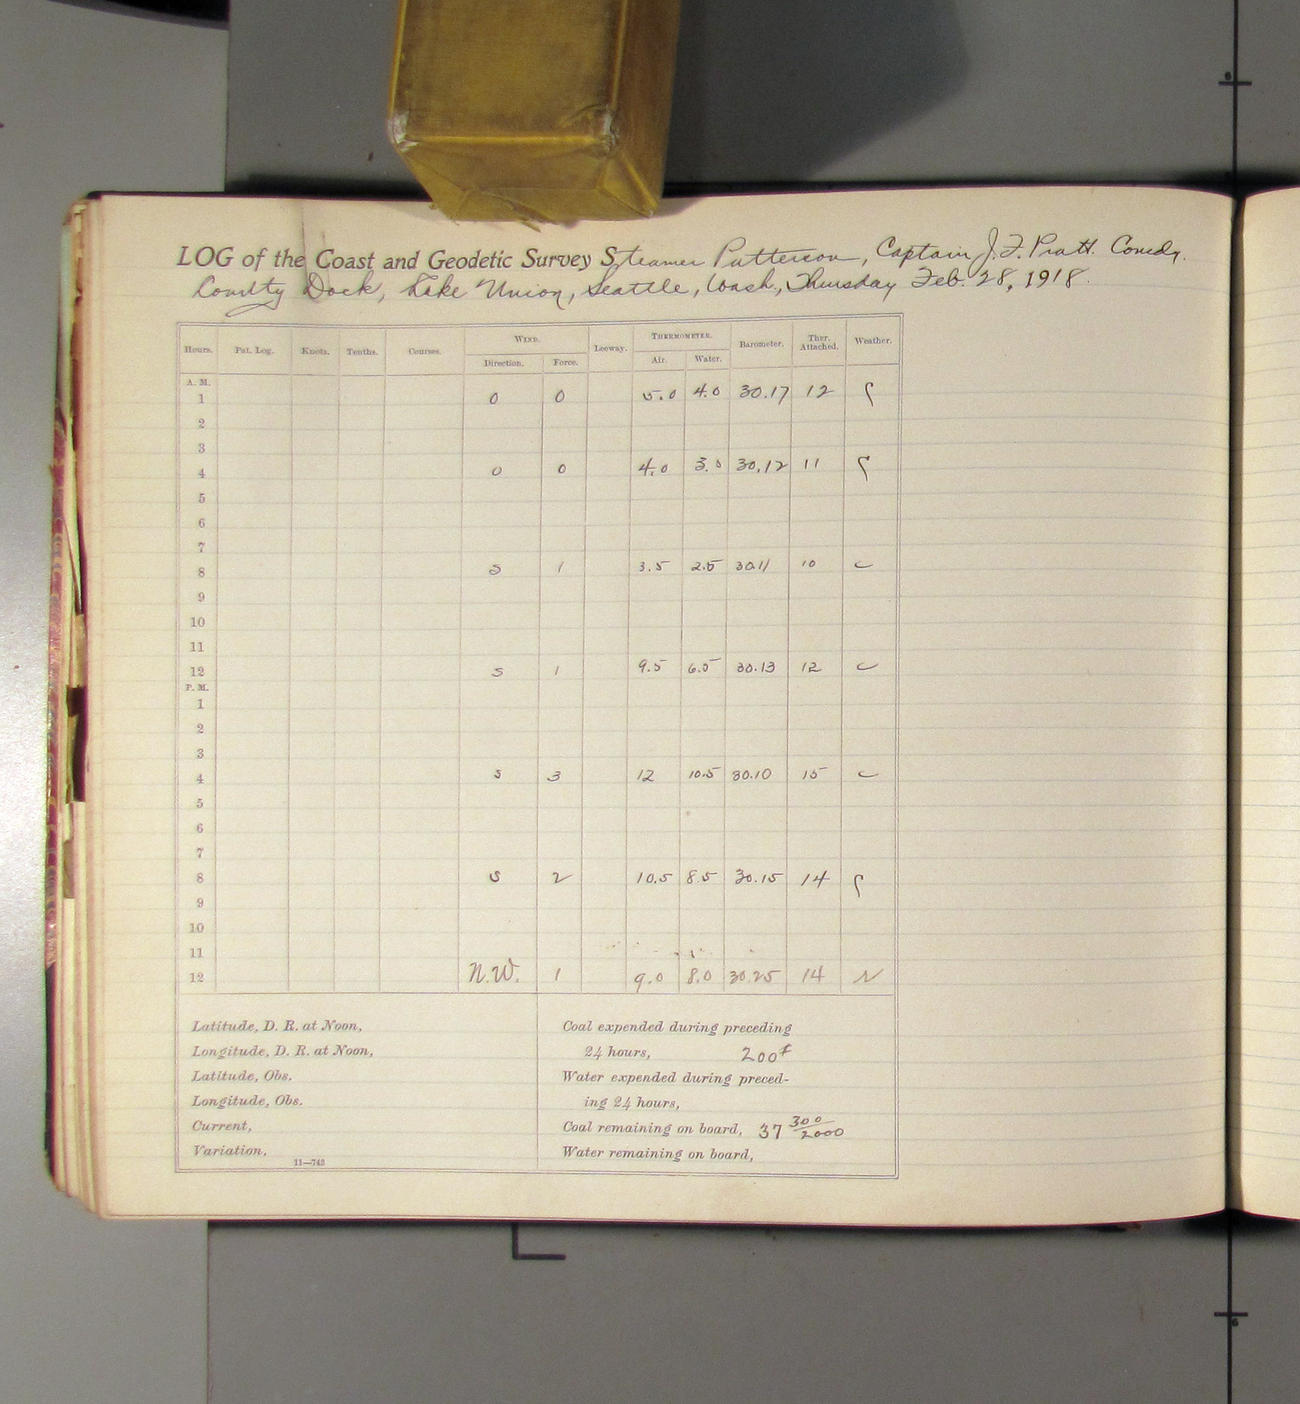 LOG of the Coast and Geodetic Survey Steamer Patterson, Captain J. F. Pratt. Comdg.
County Dock, Lake Union, Seattle, Wash., Thursday Feb. 28, 1918.
Hours. Pat. Log. Knots. Tenths. Courses. WIND. Leeway. THERMOMETER. Barometer. Ther. Attached. Weather.
Direction. Force. Air. Water.
A. M.
1 0 0 5.0 4.0 30.17 12
2
3
4 0 0 4.0 3.0 30.12 11
5
6
7
8 S 1 3.5 2.5 30.11 10 c
9
10
11
12 S 1 9.5 6.5 30.13 12 c
P. M.
1
2
3
4 S 3 12 10.5 30.10 15 c
5
6
7
8 S 2 10.5 8.5 30.15 14
9
10
11
12 N.W. 1 9.0 8.0 30.25 14
Latitude, D. R. at Noon,
Longitude, D. R. at Noon,
Latitude, Obs.
Longitude, Obs.
Current,
Variation,
11—743
Coal expended during preceding
24 hours, 200#
Water expended during preced-
ing 24 hours,
Coal remaining on board, 37 300/2000
Water remaining on board,
6
6